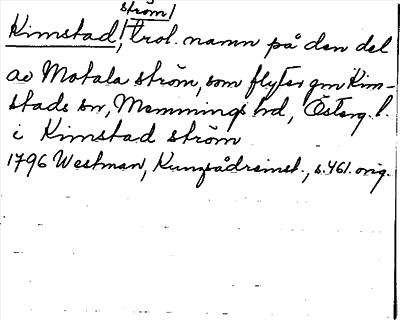 ström/
Kimstad/, trol. namn på den del
av Motala ström, som flyter gm Kim-
stads sn, Memmings hd, Österg. l.
i Kimstad ström
1796 Westman, , s. 461. orig.